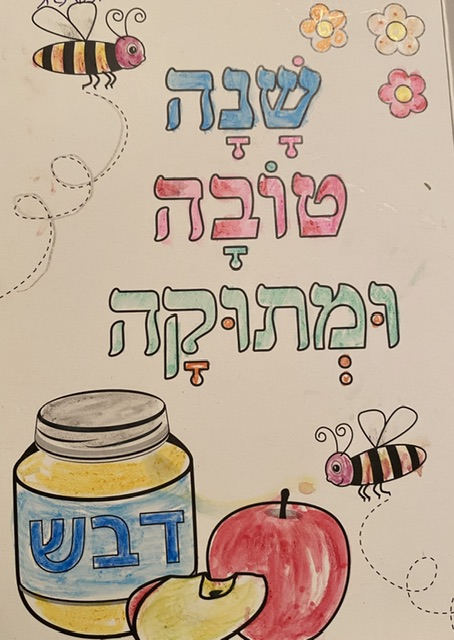 שָׁנָה
טוֹבָה
וּמְתוּקָה
דבש